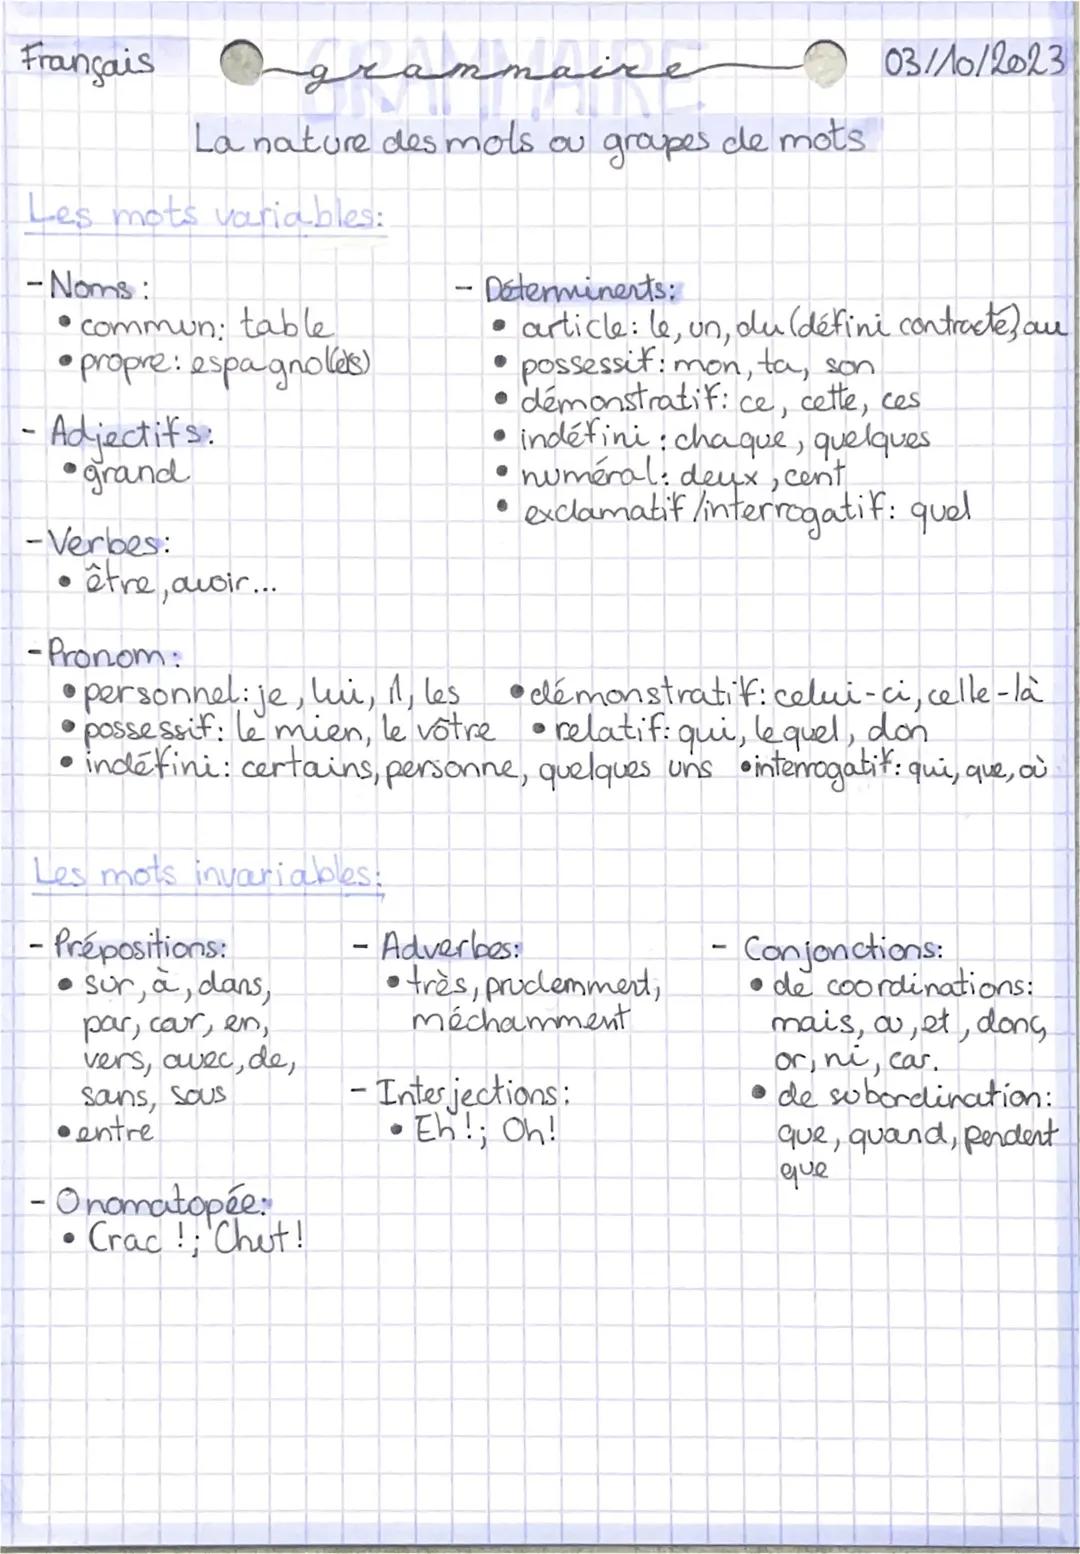 Français
GRAMMAIRE
grammaire
03/10/2023
La nature des mots ou groupes de mots
Les mots variables:
- Noms:
• commun: table
• propre: espagnol(els)
- Adjectifs:
• grand
- Verbes:
• être, avoir...
- Déterminents:
• article: le, un, du (défini contracté) au
• possessif: mon, ta, son
• démonstratif: ce, cette, ces
• indéfini: chaque, quelques
• numéral: deux, cent
• exclamatif/interrogatif: quel
- Pronom:
• personnel: je, lui, il, les • démonstratif: celui-ci, celle-là
• possessif: le mien, le vôtre • relatif: qui, lequel, don
• indéfini: certains, personne, quelques uns • interrogatif: qui, que, où
Les mots invariables:
- Prépositions:
• sur, à, dans,
par, car, en,
vers, avec, de,
sans, sous
• entre
- Onomatopée:
• Crac !; Chut!
- Adverbes:
• très, prudemment,
méchamment
- Interjections:
• Eh!; Oh!
- Conjonctions:
• de coordinations:
mais, ou, et, donc,
or, ni, car.
• de subordination:
que, quand, pendent
que